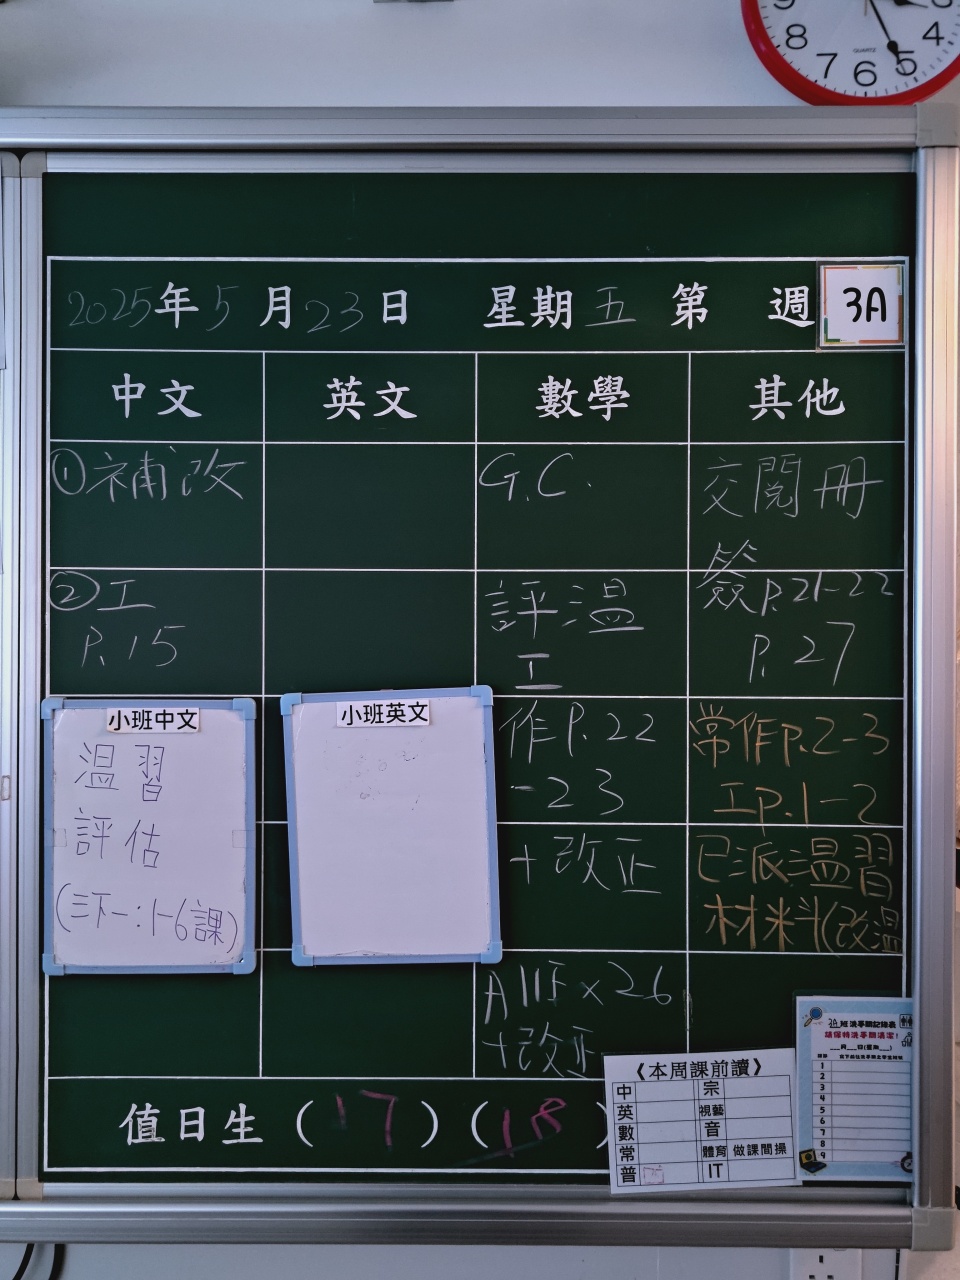 8
7
6
5
4
QUARTZ
2025年5月23日 星期五 第 週 3A
中文
英文
數學
其他
①補改
②工
P.15
小班中文
溫習
評估
(三下一:1-6課)
小班英文
G.C.
評溫
工
作P.22
-23
+改正
+改正
交閱冊
簽P.21-22
P.27
常作P.2-3
工P.1-2
已派溫習
材料(改溫
值日生(17)(18)
《本周課前讀》
中
宗
英
視藝
數
音
常
體育 做課間操
普
IT
3A班洗手間記錄表
請保持洗手間清潔!
___月___日(星期___)
1
2
3
4
5
6
7
8
9